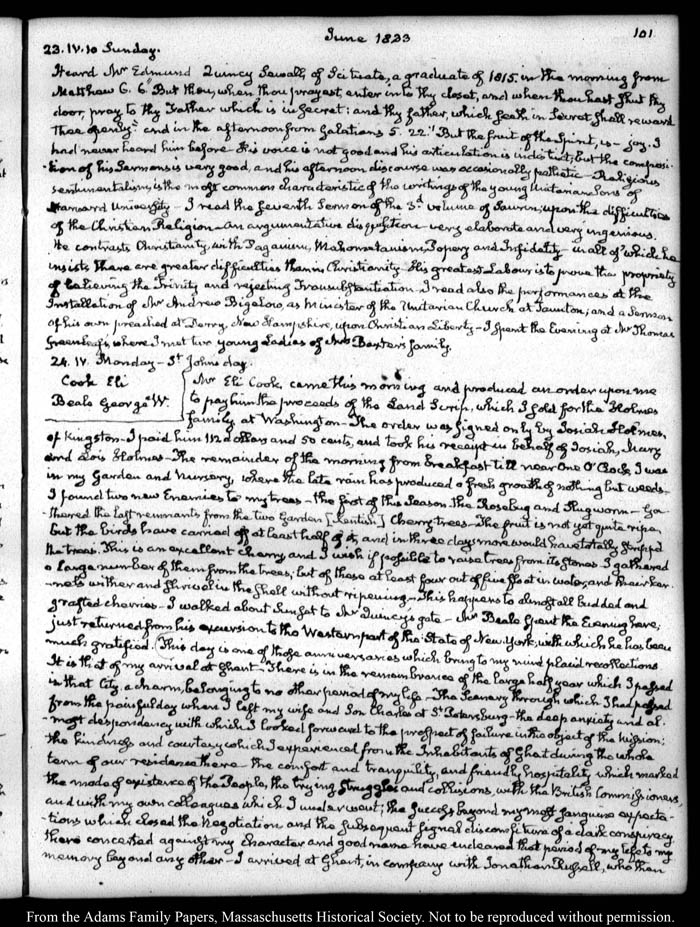 June 1833
101
23. IV. 10 Sunday.
Heard Mr Edmund Quincy Sewall, of Scituate, a graduate of 1815. in the morning from
Matthew 6. 6. But thou, when thou prayest, enter into thy closet, and when thou hast shut thy
door, pray to thy Father which is in secret: and thy father, which seeth in secret shall reward
thee openly" and in the afternoon from Galatians 5. 22. "But the fruit of the Spirit, is — joy. I
had never heard him before. His voice is not good and his articulation is indistinct, but the composi-
-tion of his Sermons is very good, and his afternoon discourse was occasionally pathetic — Religious
sentimentalism, is the most common characteristic of the writings of the young Unitarian Sons of
Harvard University — I read the seventh Sermon of the 3d volume of Saurin; upon the difficulties
of the Christian Religion — An argumentative disposition very elaborate and very ingenious.
He contrasts Christianity, with Paganism, Mahometanism, Popery and Infidelity — in all of which he
insists there are greater difficulties than in Christianity — His greatest Labour is to prove the propriety
of believing the Trinity and rejecting Transubstantiation. I read also the performances at the
Installation of Mr Andrew Bigelow, as Minister of the Unitarian Church at Taunton; and a Sermon
of his own preached at Derry, New Hampshire, upon Christian Liberty — I spent the Evening at Mr Thomas
Greenleaf's, where I met two young Ladies of Mrs Baxter's family.
24. IV. Monday — St Johns day.
Cook Eli
Beale George W.
Mr Eli Cook, came this morning and produced an order upon me
to pay him the proceeds of the Land Scrip, which I sold for the Holmes
family at Washington — The order was signed only by Josiah Holmes,
of Kingston — I paid him 112 dollars and 50 cents, and took his receipt in behalf of Josiah, Mary
and Lois Holmes — The remainder of the morning from breakfast till near One O'Clock, I was
in my Garden and Nursery, where the late rain has produced a fresh growth of nothing but weeds —
I found two new Enemies to my trees — the first of this Season. The Rosebug and Slugworm — Ga-
-thered the last remnants from the two Garden [Kentish] Cherry trees — The fruit is not yet quite ripe,
but the birds have carried off at least half of it, and in three days more would have totally stripp'd
the trees. This is an excellent cherry and I wish if possible to raise trees from its stones. I gathered
a large number of them from the trees; but of those at least four out of five float in water, and their ker-
-nels wither and shrivel in the shell without ripening — This happens to almost all budded and
grafted cherries — I walked about Sunset to Mr Quincy's gate — Mr Beale spent the Evening here;
just returned from his excursion to the Western part of the State of New York; with which he has been
much gratified. (This day is one of those anniversaries which bring to my mind placid recollections
It is that of my arrival at Ghent — There is in the remembrance of the large half year which I passed
in that City, a charm, belonging to no other period of my life — The Scenery through which I had passed
from the painful day when I left my wife and Son Charles at St Petersburg — the deep anxiety and al-
-most despondency with which I looked forward to the prospect of failure in the object of the Mission;
the kindness and courtesy which I experienced from the Inhabitants of Ghent during the whole
term of our residence there — the comfort and tranquility, and friendly hospitality which marked
the mode of existence of the People, the trying struggles and collisions, with the British Commissioners,
and with my own colleagues which I underwent; the success beyond my most sanguine expecta-
-tions which closed the Negotiation and the subsequent signal discomfiture of a dark conspiracy,
there concerted against my character and good name have endeared that period of my life to my
memory beyond any other — I arrived at Ghent, in company with Jonathan Russell, who then
From the Adams Family Papers, Massachusetts Historical Society. Not to be reproduced without permission.